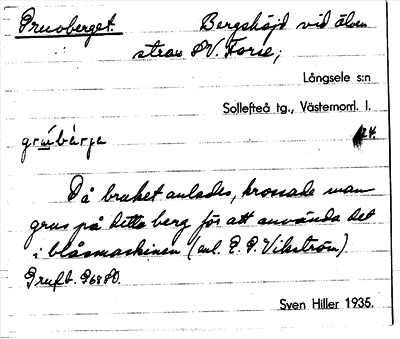 Gruvberget. Bergshöjd vid älven
strax S V. Forse;
Långsele s:n
Sollefteå tg., Västernorrl. l.
24.
Då bruket anlades, krossade man
grus på detta berg för att använda det
i blåsmaskinen (enl. E. P. Vikström)
Grufb. P6880.
Sven Hiller 1935.